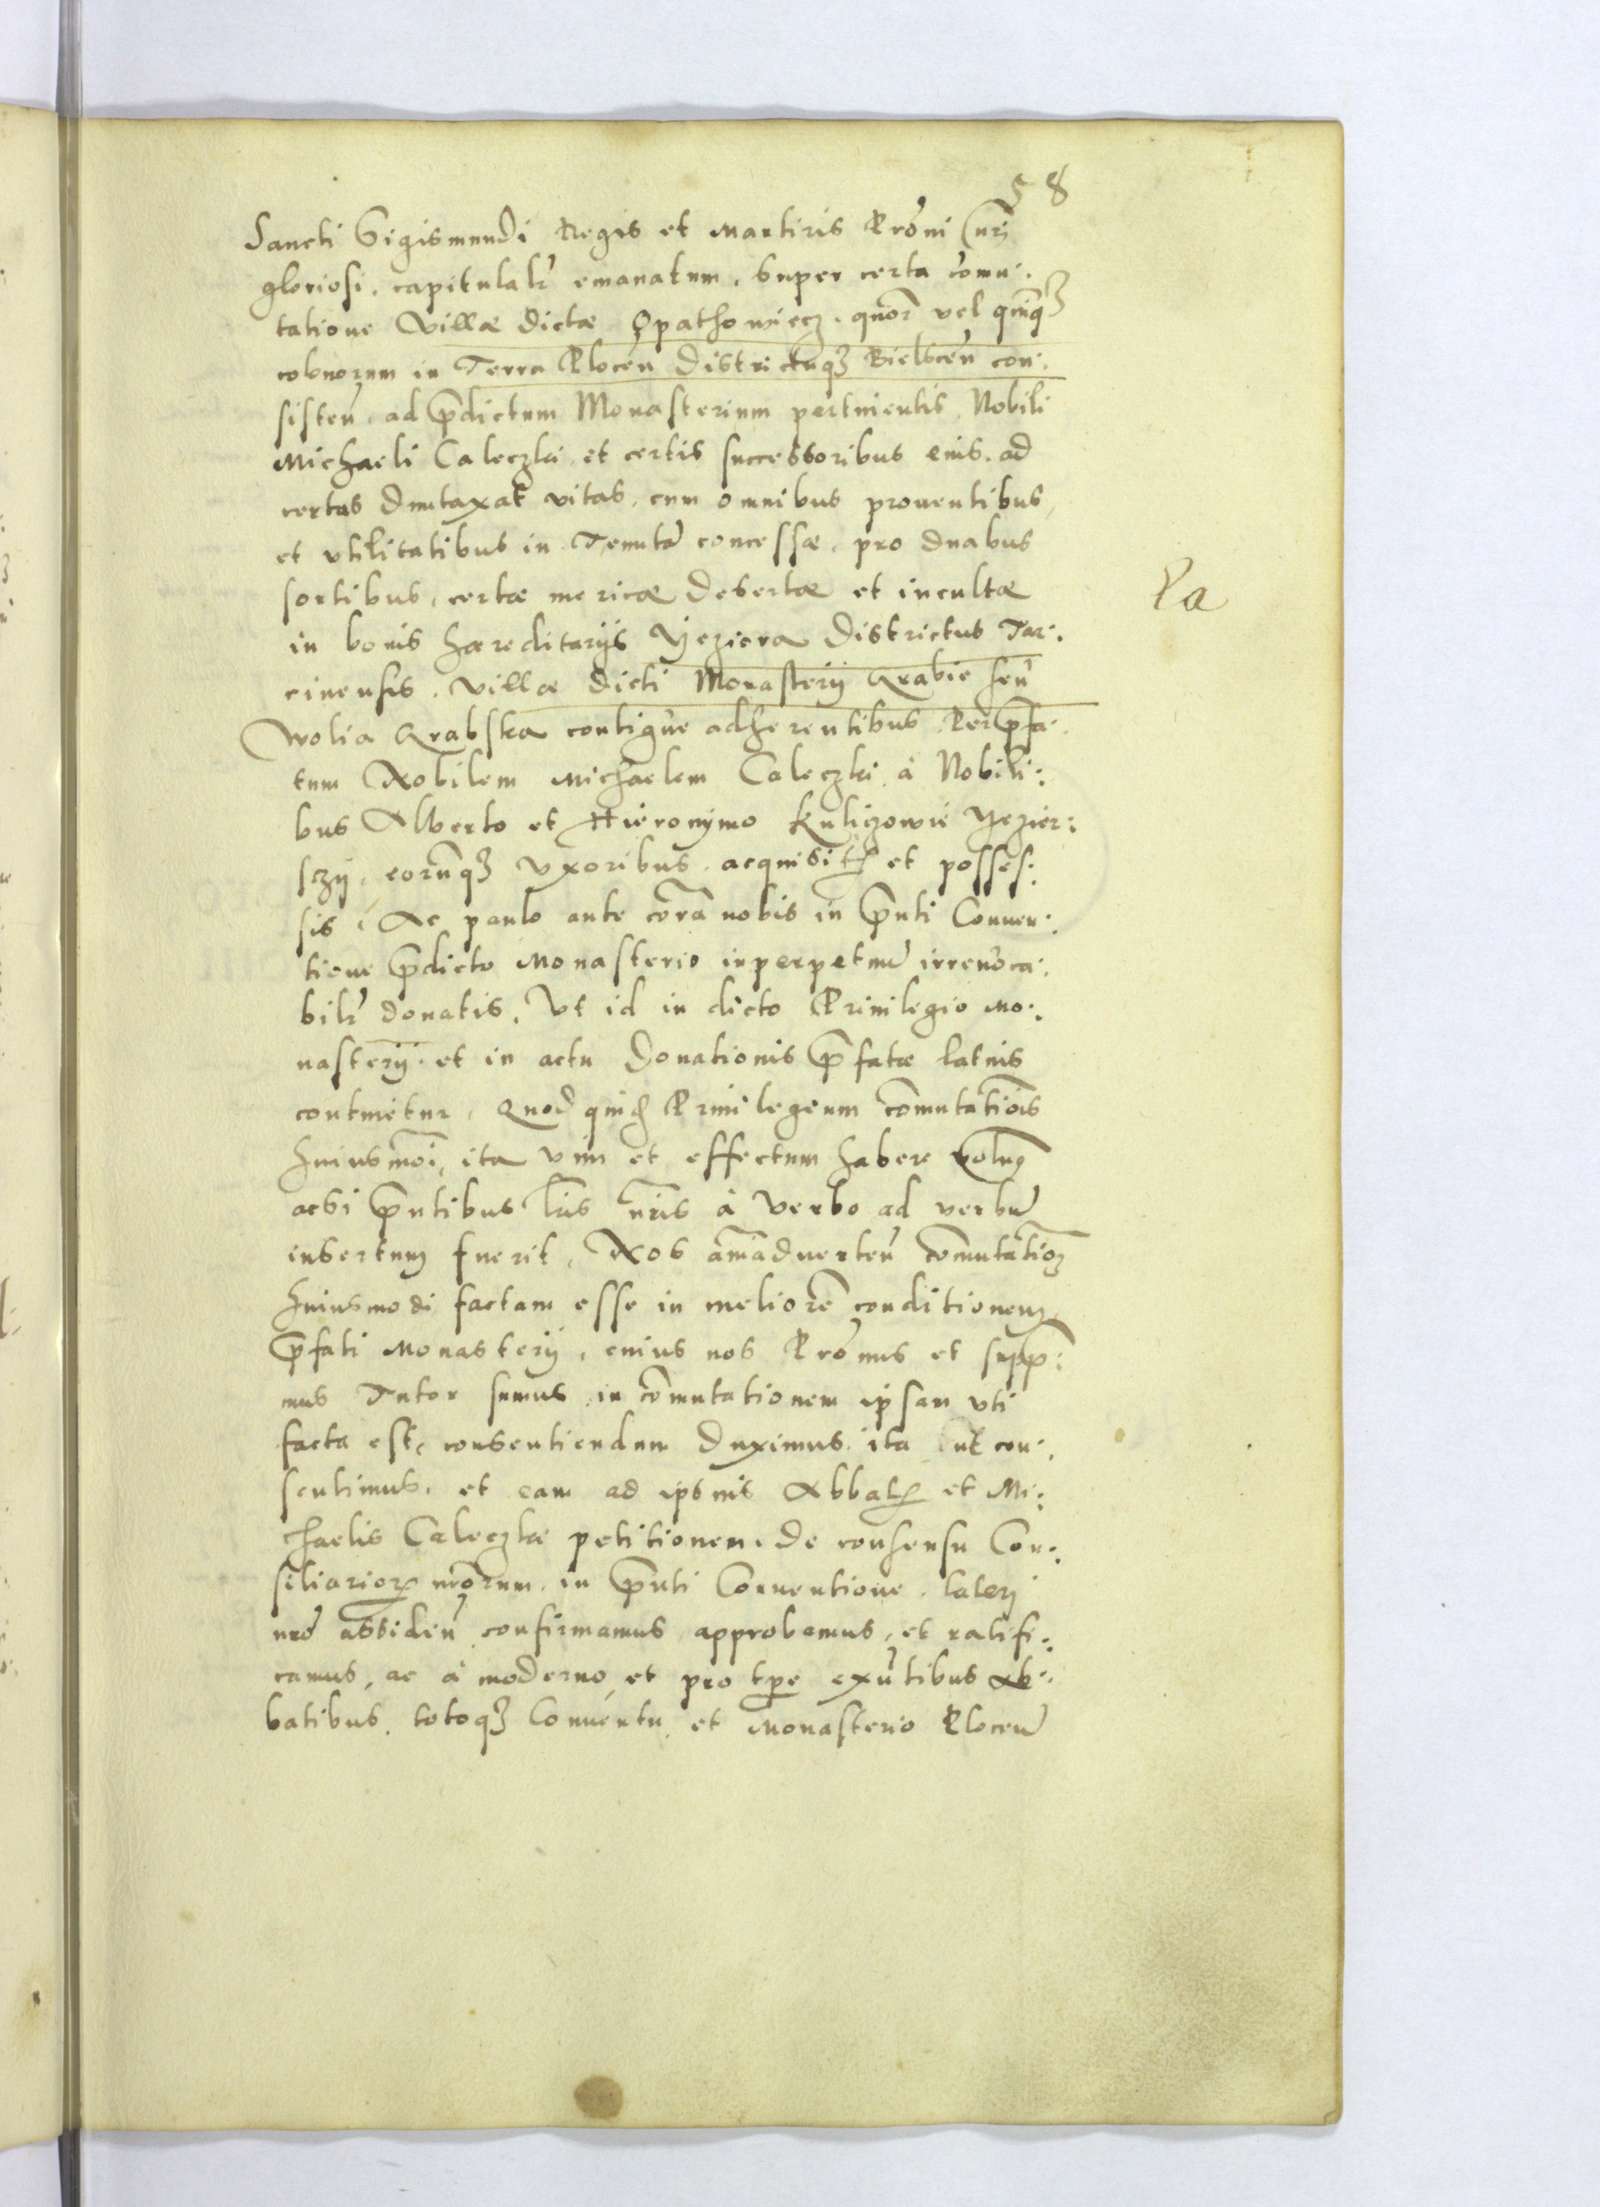 58
Sancti Sigismundi Regis et Martiris Prōni nrī
gloriosi. capitulalr̄ emanatum. Super certa comu:
tatione Villæ dictæ Opathowiecz. quor̄ vel quinq3
colonorum in Terra Plocen̄ Districtuq3 Bielscen̄ con:
sisten̄. ad p̄dictum Monasterium pertinentis Nobili
Michaeli Caleczki et certis successoribus eius. ad
certas duntaxat vitas, cum omnibus prouentibus,
et vtilitatibus in Tenutā concessæ. pro duabus
sortibus, certæ mericæ desertæ et incultæ
La
in bonis hæreditarijs Yeziora Districtus Tar:
cinensis. villæ dicti Monasterij Krabie seu
Wolia Krabska contigue adherentibus. Per p̄fa:
tum Nobilem Michaelem Caleczki à Nobili:
bus Alberto et Hieronymo Kuliczowie Yezier:
sczy, eorūq3 vxoribus. acquisit et posses:
sis, Ac paulo ante corā nobis in p̄nti Conuen:
tione p̄dicto Monasterio inperpetuū irreuoca:
bilr̄ donatis. Vt id in dicto Priuilegio Mo:
nasterij. et in actu donationis p̄fatæ latius
continetur. Quod quid Priuilegium cōmutatiōis
huiusmōi, ita vim et effectum habere volum9
acsi p̄ntibus lrīs nrīs à verbo ad verbū
insertum fuerit. Nos aīmaduerten̄ cōmutatiō3
huiusmodi factam esse in meliorē conditionem
p̄fati Monasterij, cuius nos Prōnus et supp̄:
mus Tutor sumus in cōmutationem ipsam vti
facta est, consentiendum duximus. ita ut con:
sentimus. et eam ad ipsius Abbat et Mi:
chaelis Caleczki petitionem. de consensu Con:
siliarior nrōrum. in p̄nti Conuentione. lateri
nrō assiden̄ confirmamus approbamus, et ratifi:
camus, ac à moderno, et pro tp̄e exn̄tibus Ab:
batibus. totoq3 Conuentu et Monasterio Plocen̄